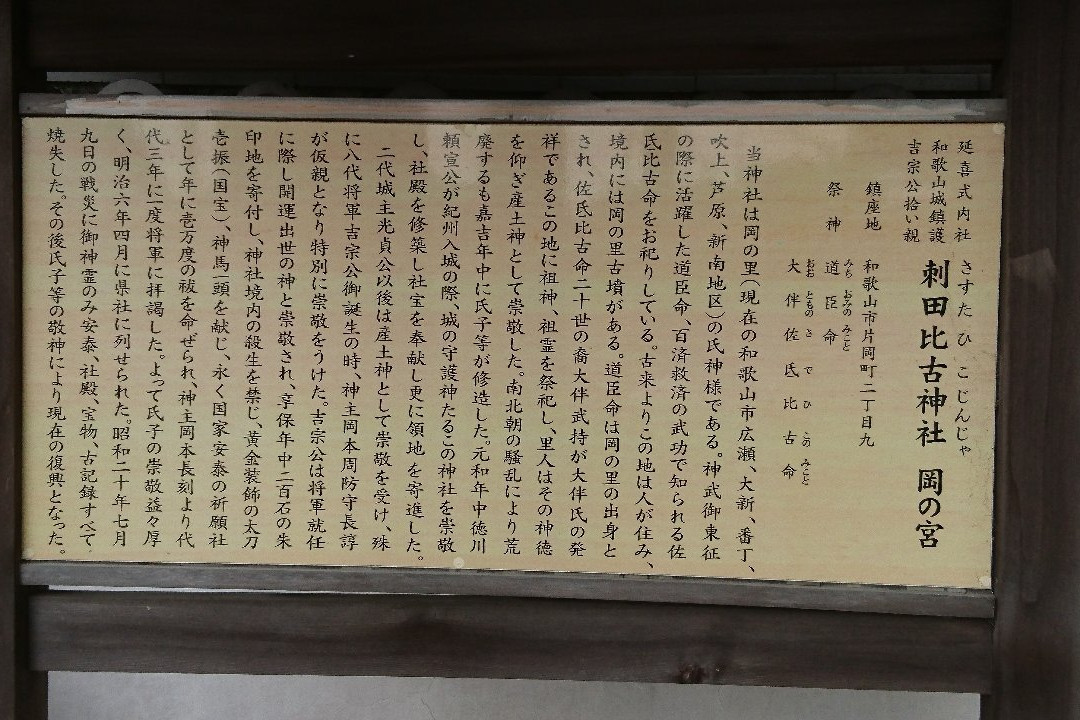 延喜式内社
和歌山城鎮護
吉宗公拾い親
さすたひこじんじゃ
刺田比古神社 岡の宮
鎮座地 和歌山市片岡町二丁目九
祭神 道臣命
みち おみの みこと
大伴佐氐比古命
おお ともの さ で ひ この みこと
当神社は岡の里(現在の和歌山市広瀬、大新、番丁、
吹上、芦原、新南地区)の氏神様である。神武御東征
の際に活躍した道臣命、百済救済の武功で知られる佐
氐比古命をお祀りしている。古来よりこの地は人が住み、
境内には岡の里古墳がある。道臣命は岡の里の出身と
され、佐氐比古命二十世の裔大伴武持が大伴氏の発
祥であるこの地に祖神、祖霊を祭祀し、里人はその神徳
を仰ぎ産土神として崇敬した。南北朝の騒乱により荒
廃するも嘉吉年中に氏子等が修造した。元和年中徳川
頼宣公が紀州入城の際、城の守護神たるこの神社を崇敬
し、社殿を修築し社宝を奉献し更に領地を寄進した。
二代城主光貞公以後は産土神として崇敬を受け、殊
に八代将軍吉宗公御誕生の時、神主岡本周防守長諄
が仮親となり特別に崇敬をうけた。吉宗公は将軍就任
に際し開運出世の神と崇敬され、享保年中二百石の朱
印地を寄付し、神社境内の殺生を禁じ、黄金装飾の太刀
壱振(国宝)、神馬一頭を献じ、永く国家安泰の祈願社
として年に壱万度の祓を命ぜられ、神主岡本長刻より代
代三年に一度将軍に拝謁した。よって氏子の崇敬益々厚
く、明治六年四月に県社に列せられた。昭和二十年七月
九日の戦災に御神霊のみ安泰、社殿、宝物、古記録すべて、
焼失した。その後氏子等の敬神により現在の復興となった。